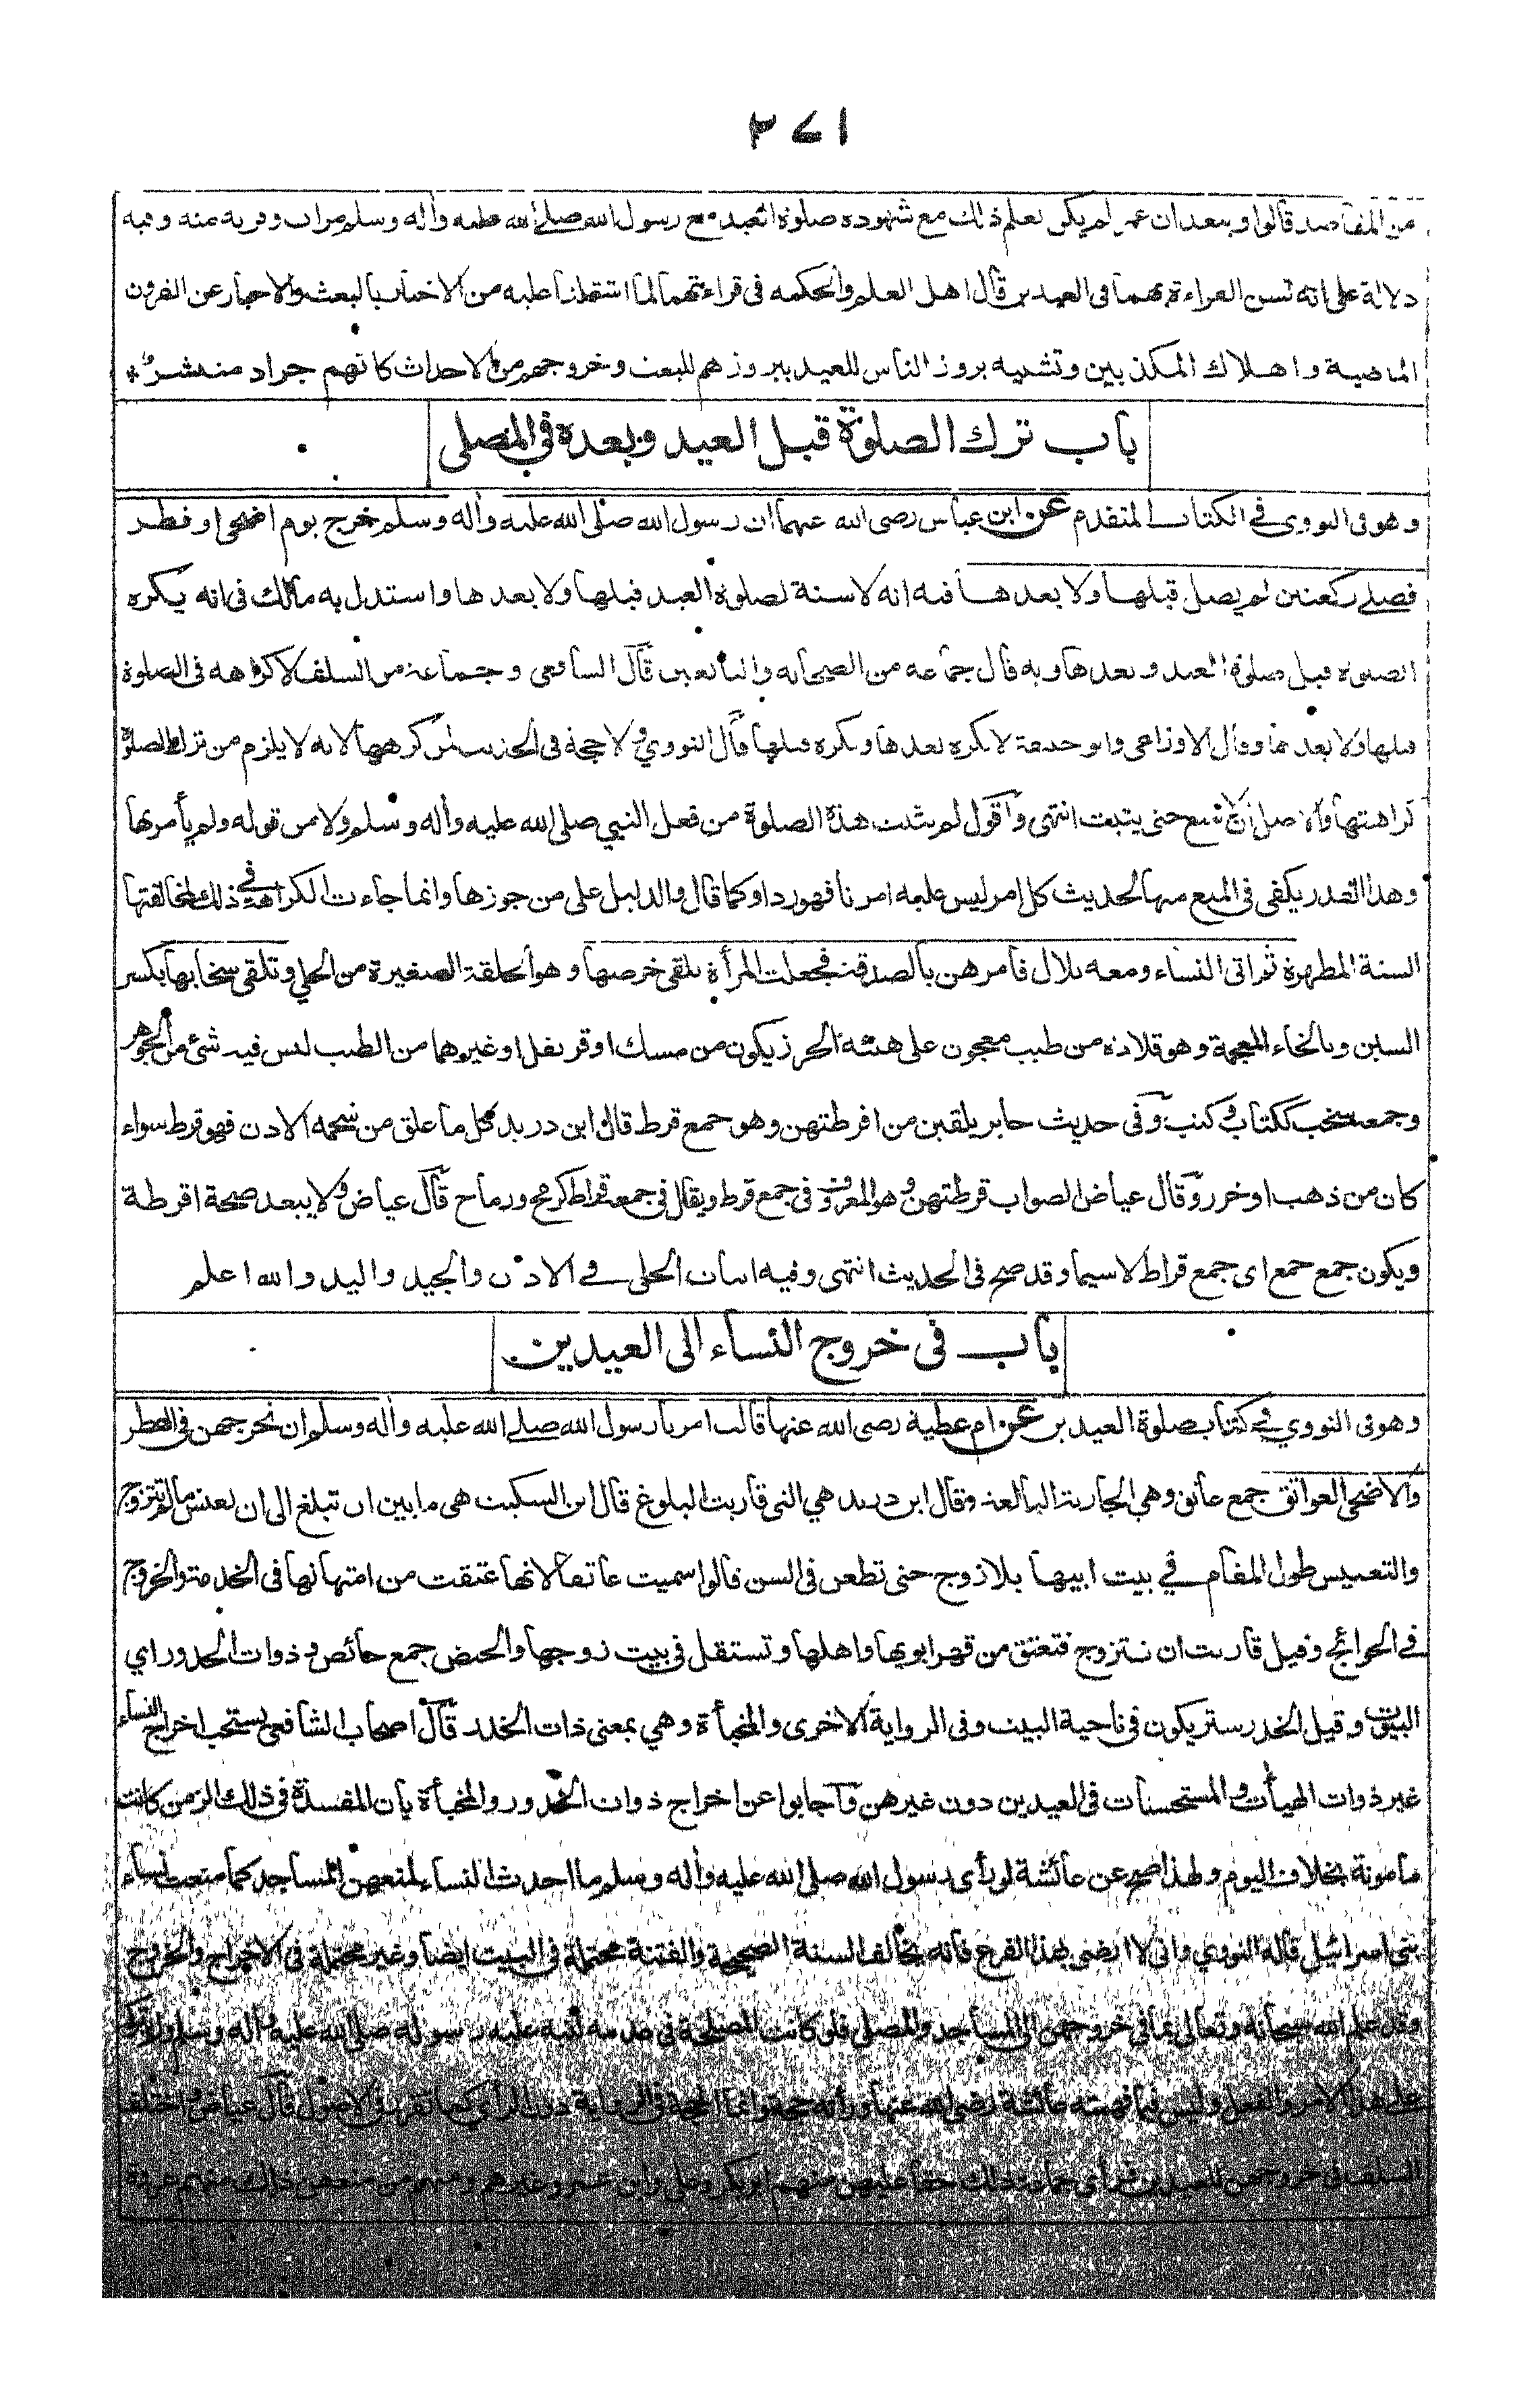 ٣٧١
من المقاصد قالوا وبعد ان عمر لم يكن يعلم ذلك مع شهوده صلوة العيد مع رسول الله صلى الله عليه وأله وسلم مرات وقربه منه وفيه
دلالة على انه تسن القراءة بهما في العيدين قال اهل العلم والحكمه فى قراءتهما لما اشتملتا عليه من الاخبار بالبعث والاخبار عن القرون
الماضية واهلاك المكذبين وتشبيه بروز الناس للعيد ببروزهم للبعث وخروجهم من الاحداث كانهم جراد منتشر *
باب ترك الصلوة قبل العيد وبعده في المصلى
وهو في النووي في الكتاب المتقدم عن ابن عباس رضى الله عنهما ان رسول الله صلى الله عليه وأله وسلم خرج يوم اضحى او فطر
فصلى ركعتين لم يصل قبلها ولا بعدها فيه انه لا سنة لصلوة العيد قبلها ولا بعدها واستدل به مالك فى انه يكره
الصلوة قبل صلوة العيد وبعدها وبه قال جماعه من الصحابه والتابعين قال الشافعي وجماعة من السلف لا كراهه فى الصلوة
قبلها ولا بعدها وقال الاوزاعي وابو حنيفة لا يكره بعدها ويكره قبلها قال النووي ولا حجة فى الحديث لمن كرهها لانه لا يلزم من ترك الصلوة
كراهتها والاصل ان لا منع حتى يثبت انتهى واقول لم يثبت هذه الصلوة من فعل النبي صلى الله عليه وأله وسلم ولا من قوله ولم يأمر بها
وهذا القدر يكفى فى المنع منها لحديث كل امر ليس عليه امرنا فهو رد او كما قال والدليل على من جوزها وانما جاءت الكراهة في ذلك لمخالفتها
السنة المطهرة ثم اتى النساء ومعه بلال فأمرهن بالصدقة فجعلت المرأة تلقى خرصها وهو الحلقة الصغيرة من الحلي وتلقى سخابها بكسر
السين وبالخاء المعجمة وهو قلادة من طيب معجون على هيئة الخرز يكون من مسك او قرنفل او غيرهما من الطيب ليس فيه شئ من الجوهر
وجمعه سخب ككتاب وكتب وفى حديث جابر يلقين من اقرطتهن وهو جمع قرط قال ابن دريد كل ما علق من شحمة الاذن فهو قرط سواء
كان من ذهب او خرز وقال عياض الصواب قرطتهن وهو المعروف فى جمع قرط ويقال فى جمعه قراط كرمح ورماح قال عياض ولا يبعد صحة اقرطة
ويكون جمع جمع اى جمع قراط لا سيما وقد صح فى الحديث انتهى وفيه اثبات الحلى فے الاذن والجيد واليد والله اعلم
باب في خروج النساء الى العيدين
وهو فى النووي في كتاب صلوة العيدين عن ام عطية رضى الله عنها قالت امرنا رسول الله صلى الله عليه وأله وسلم ان نخرجهن فى الفطر
والاضحى العواتق جمع عاتق وهي الجارية البالغة وقال ابن دريد هي التى قاربت البلوغ قال ابن السكيت هى ما بين ان تبلغ الى ان تعنس ما لم تتزوج
والتعنيس طول المقام فے بيت ابيها بلا زوج حتى تطعن فى السن قالوا سميت عاتقا لانها عتقت من امتهانها فى الخدمة والخروج
فے الحوائج وقيل قاربت ان تتزوج فتعتق من قهر ابويها واهلها وتستقل فى بيت زوجها والحيض جمع حائض وذوات الخدور اي
البيوت وقيل الخدر ستر يكون فى ناحية البيت وفى الرواية الاخرى والمخبأة وهي بمعنى ذات الخدر قال اصحاب الشافعى يستحب اخراج النساء
غير ذوات الهيأت والمستحسنات فى العيدين دون غيرهن واجابوا عن اخراج ذوات الخدور والمخبأة بان المفسدة فى ذلك الزمن كانت
مأمونة بخلاف اليوم ولهذا صح عن عائشة لو رأى رسول الله صلى الله عليه وأله وسلم ما احدث النساء لمنعهن المساجد كما منعت نساء
بنى اسرائيل قاله النووي وانى لا ارضى بهذا الفرع فانه يخالف السنة الصحيحة والفتنة محتملة فى البيت ايضا وغير محتملة فى الاخراج والخروج
وقد علم الله سبحانه وتعالى بما في خروجهن الى المساجد والمصلى فلو كانت المصلحة فى عدمه لنبه عليه رسوله صلى الله عليه وأله وسلم
على هذا الامر والفعل وليس فيما فهمته عائشة رضى الله عنها ورأته حجة وانما الحجة فى الرواية دون الرأي كما تقرر فى الاصول قال عياض واختلف
السلف فى خروجهن للعيدين فرأى جماعة ذلك حقا عليهن منهم ابو بكر وعلي وابن عمر وغيرهم ومنهم من منعهن ذلك منهم عروة